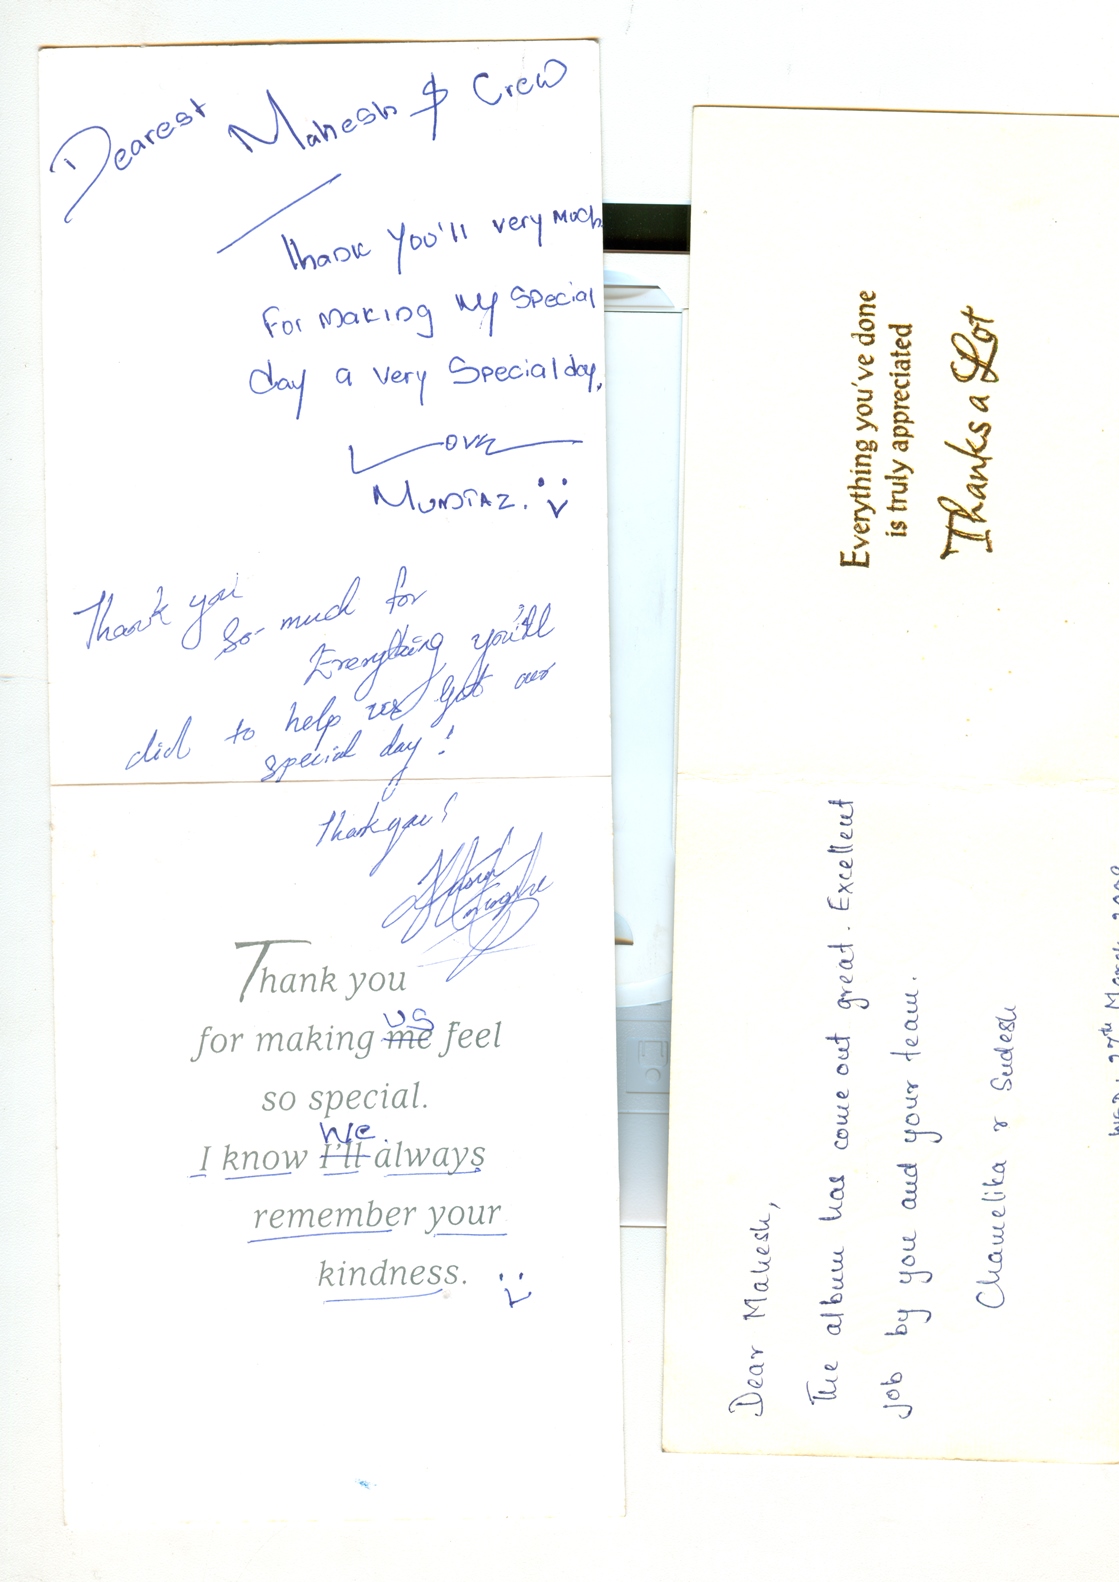 Dearest Mahesh & Crew
Thank you'll very much
For making my special
day a very special day,
Love
Mumtaz.
Thank you
So much for
Everything you'll
did to help us get our
special day!
Thank you!
Thank you
for making me us feel
so special.
I know I'll we always
remember your
kindness.
Everything you've done
is truly appreciated
Thanks a Lot
Dear Mahesh,
The album has come out great. Excellent
job by you and your team.
Chamelika & Sudesh
27th March